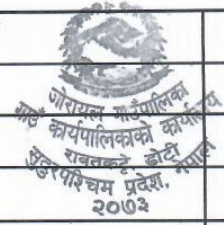 जोरायल गाउँपालिका
गाउँ कार्यपालिकाको कार्यालय
रावतकट्टे डोटी
सुदूरपश्चिम प्रदेश, नेपाल
२०७३